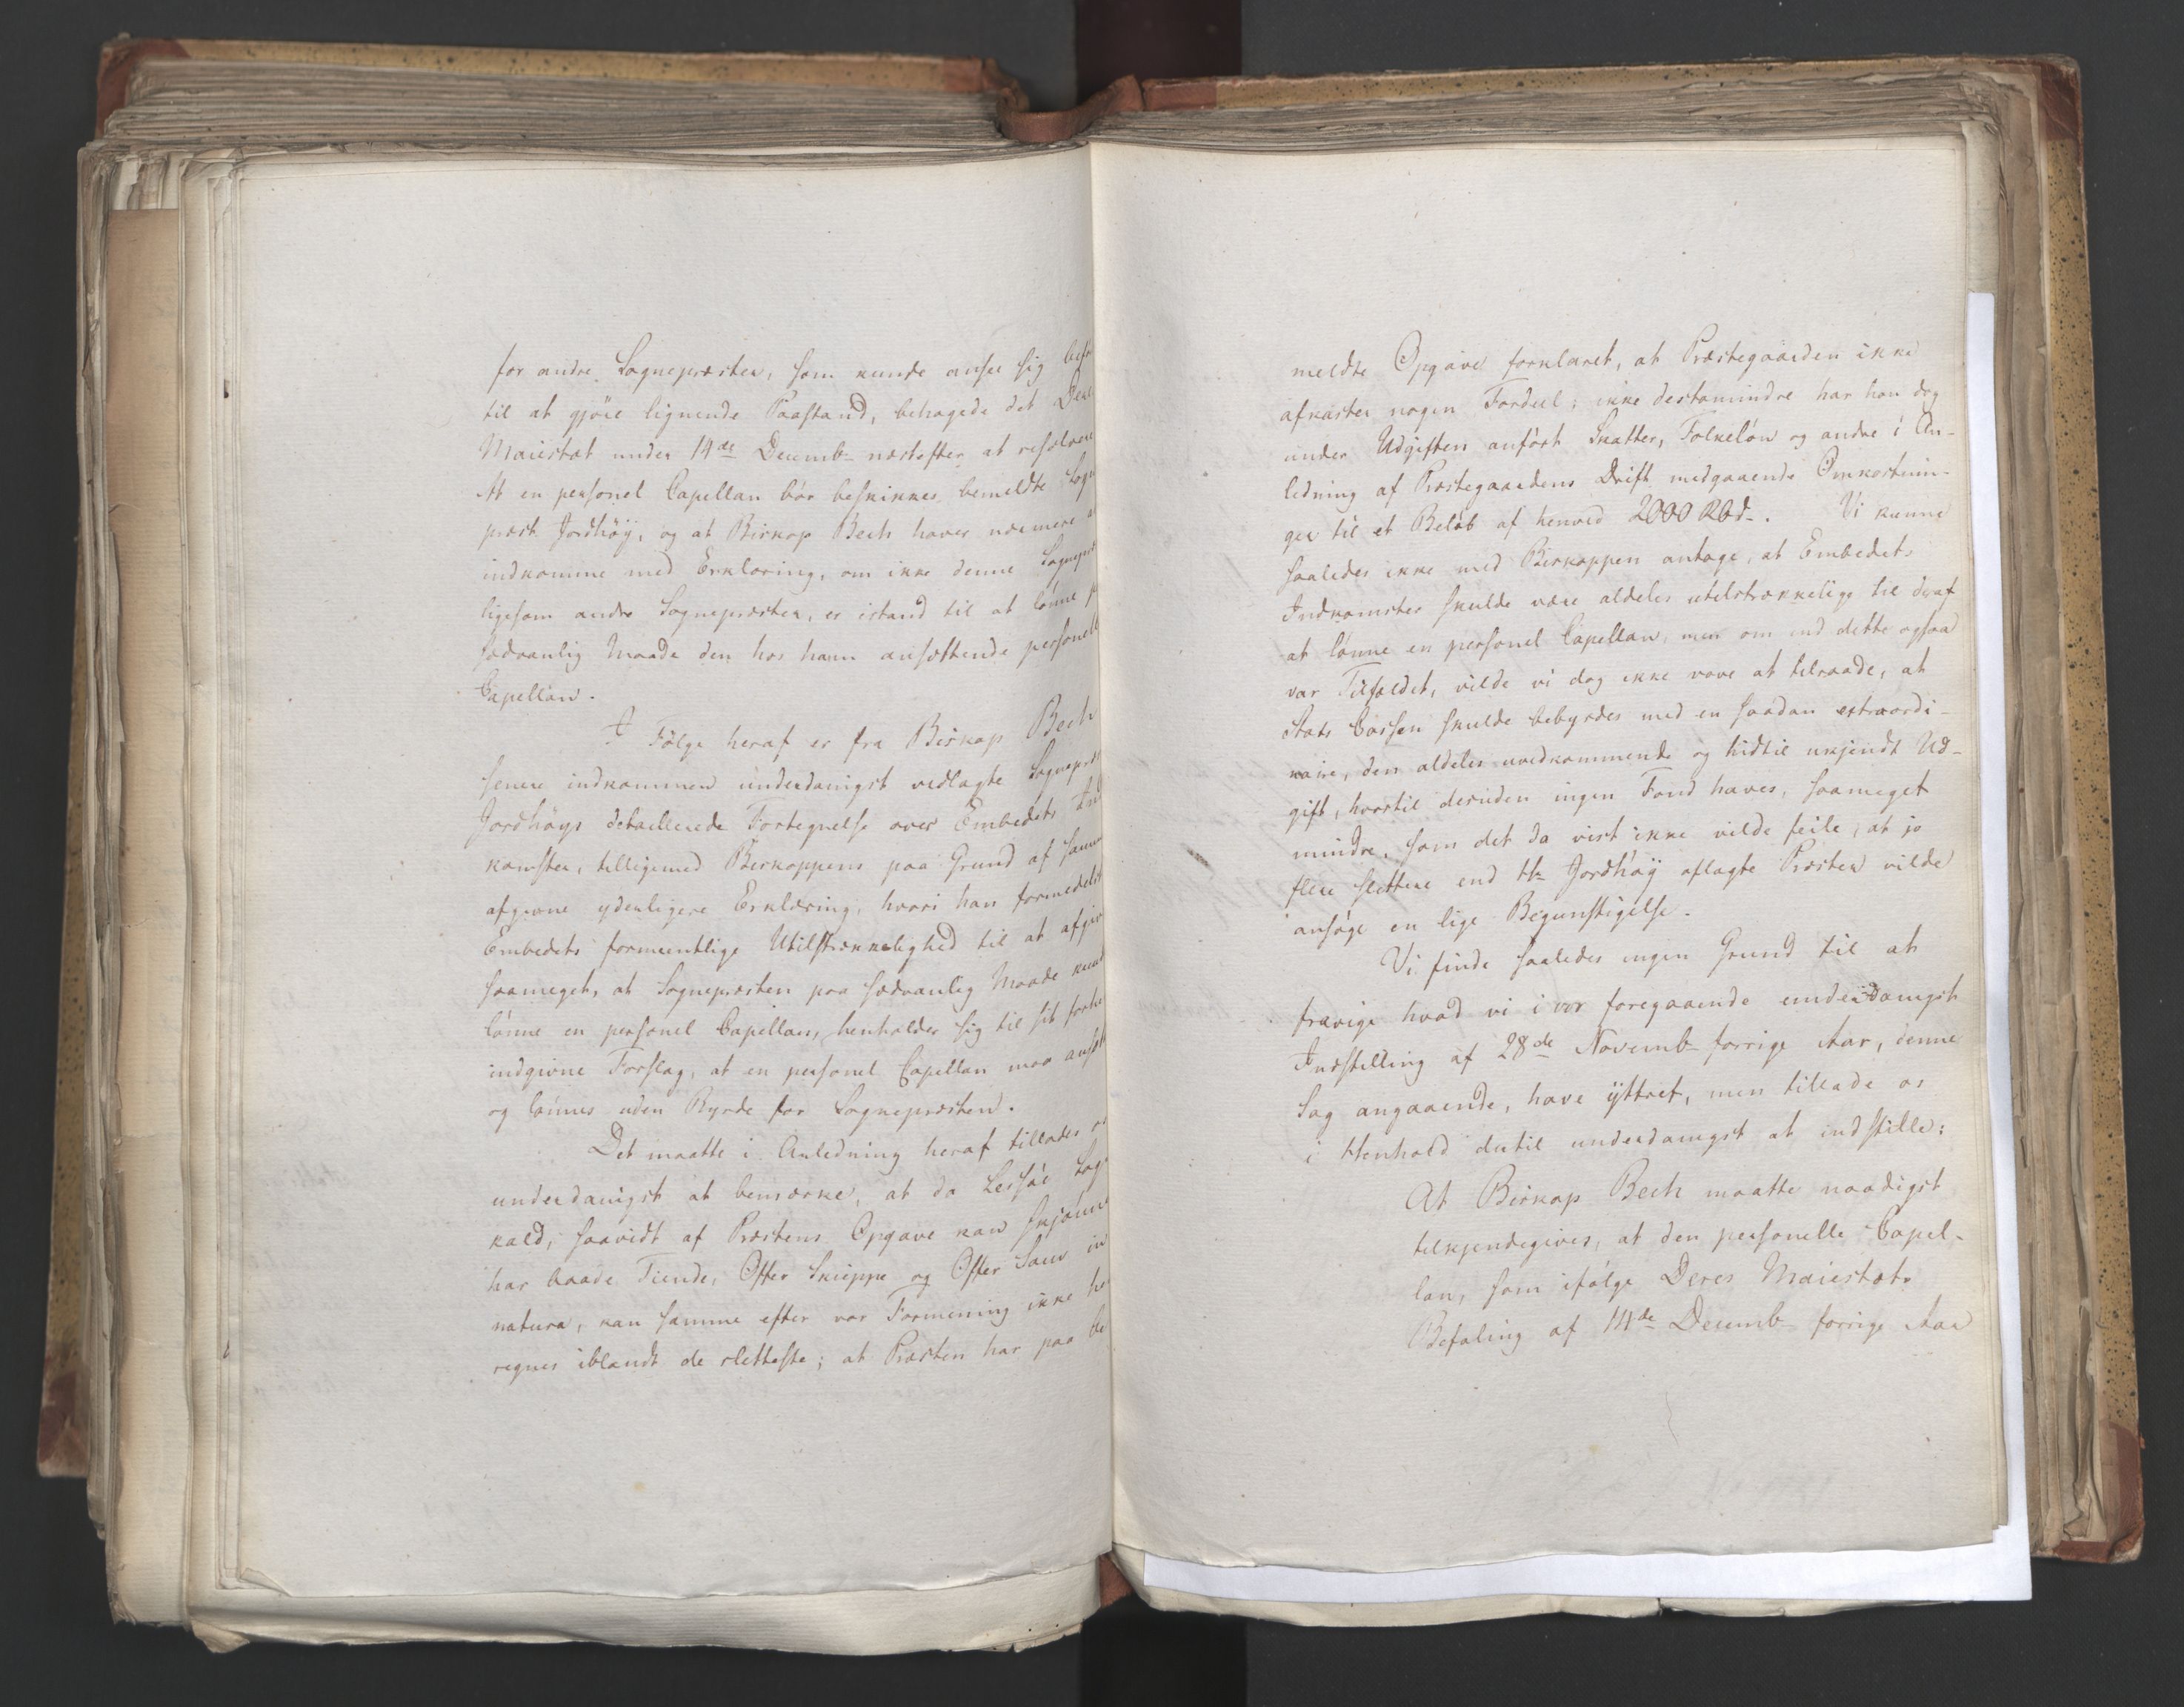 for andre Sognepræster, som kunde ansee sig
til at gjöre lignende Paastand, behagede det
Maiestæt under 14de Decemb næstefter at resolvere
At en personel Capellan bör beskikkes bemeldte Sogne
præst Jordhöÿ, og at Biskop Bech haver nærmere
indkomme med Erklæring, om ikke denne Sognepræ
ligesom andre Sognepræster, er istand til at lönne
sædvanlig Maade den hos ham ansættende personelle
Capellan.
I Fölge heraf er fra Biskop Bech
senere indkommen underdanigst vedlagte Sognepræ
Jordhöys detaillerede Fortegnelse over Embedets Ind
komster, tilligemed Biskoppens paa Grund af samme
afgivne yderligere Erklæring, hvori han formedelst
Embedets formeentlige Utilstrækkelighed til at afgive
saameget, at Sognepræsten paa sædvanlig Maade kund
lönne en personel Capellan, henholder sig til sit forhe
indgivne Forslag, at en personel Capellan maa ansæt
og lönnes uden Byrde for Sognepræsten.
Det maatte i Anledning heraf tillades os
underdanigst at bemærke, at da Lessöe Sog
kald, saavidt af Præstens Opgave kan skjönne
har baade Tiende, Offer Skieppe og Offer in
natura, kan samme efter vor Formening ikke he
regnes iblandt de sletteste; at Præsten har paa be
meldte Opgave forklaret, at Præstegaarden ikke
afkaster nogen Fordeel; ikke destomindre har han dog
under Udgiften anfört Skatter, Folkelön og andre i An-
ledning af Præstegaardens Drift medgaaende Omkostnin-
ger til et Belöb af henved 2000 Rbd. Vi kunne
saaledes ikke med Biskoppen antage, at Embedets
Indkomster skulde være aldeles utilstrækkelige til deraf
at lönne en personel Capellan, men om end dette ogsaa
var Tilfældet, vilde vi dog ikke vove at tilraade, at
Stats Cassen skulde bebyrdes med en saadan extraordi-
naire, den aldeles uvedkommende og hidtil ukjendt Ud-
gift, hvortil desuden ingen Fond haves, saameget
mindre, som det da vist ikke vilde feile, at jo
flere slettere end Hr Jordhöÿ aflagte Præster vilde
ansöge en lige Begunstigelse.
Vi finde saaledes ingen Grund til at
fravige hvad vi i vor foregaaende underdanigst
Indstilling af 28de Novemb forrige Aar, denne
Sag angaaende, have ÿttret, men tillade os
i Henhold dertil underdanigst at indstille:
At Biskop Bech maatte naadigst
tilkjendegives, at den personelle Capel-
lan, som ifölge Deres Maiestæts
Befaling af 14de Decemb forrige Aar